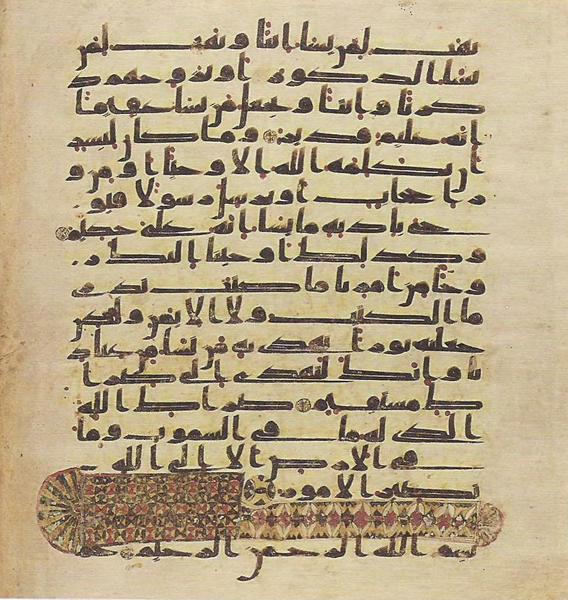 يهب لمن يشا انثا ويهب لمن
يشا الذكور او يزوجهم ذ
كرنا وانثا ويجعل من يشا عقيما
انه عليم قدير وما كان لبشر
ان يكلمه الله الا وحيا او من و
راى حجاب او يرسل رسولا فيو
حى باذنه ما يشا انه على حكيم
وكذلك اوحينا اليك ر
وحا من امرنا ما كنت تدرى
ما الكتب ولا الايمن ولكن
جعلنه نورا نهدى به من نشا من عباد
نا وانك لتهدى الى صر
ط مستقيم صرط الله
الذى له ما فى السموت وما
فى الارض الا الى الله
تصير الامور
بسم الله الرحمن الرحيم حم